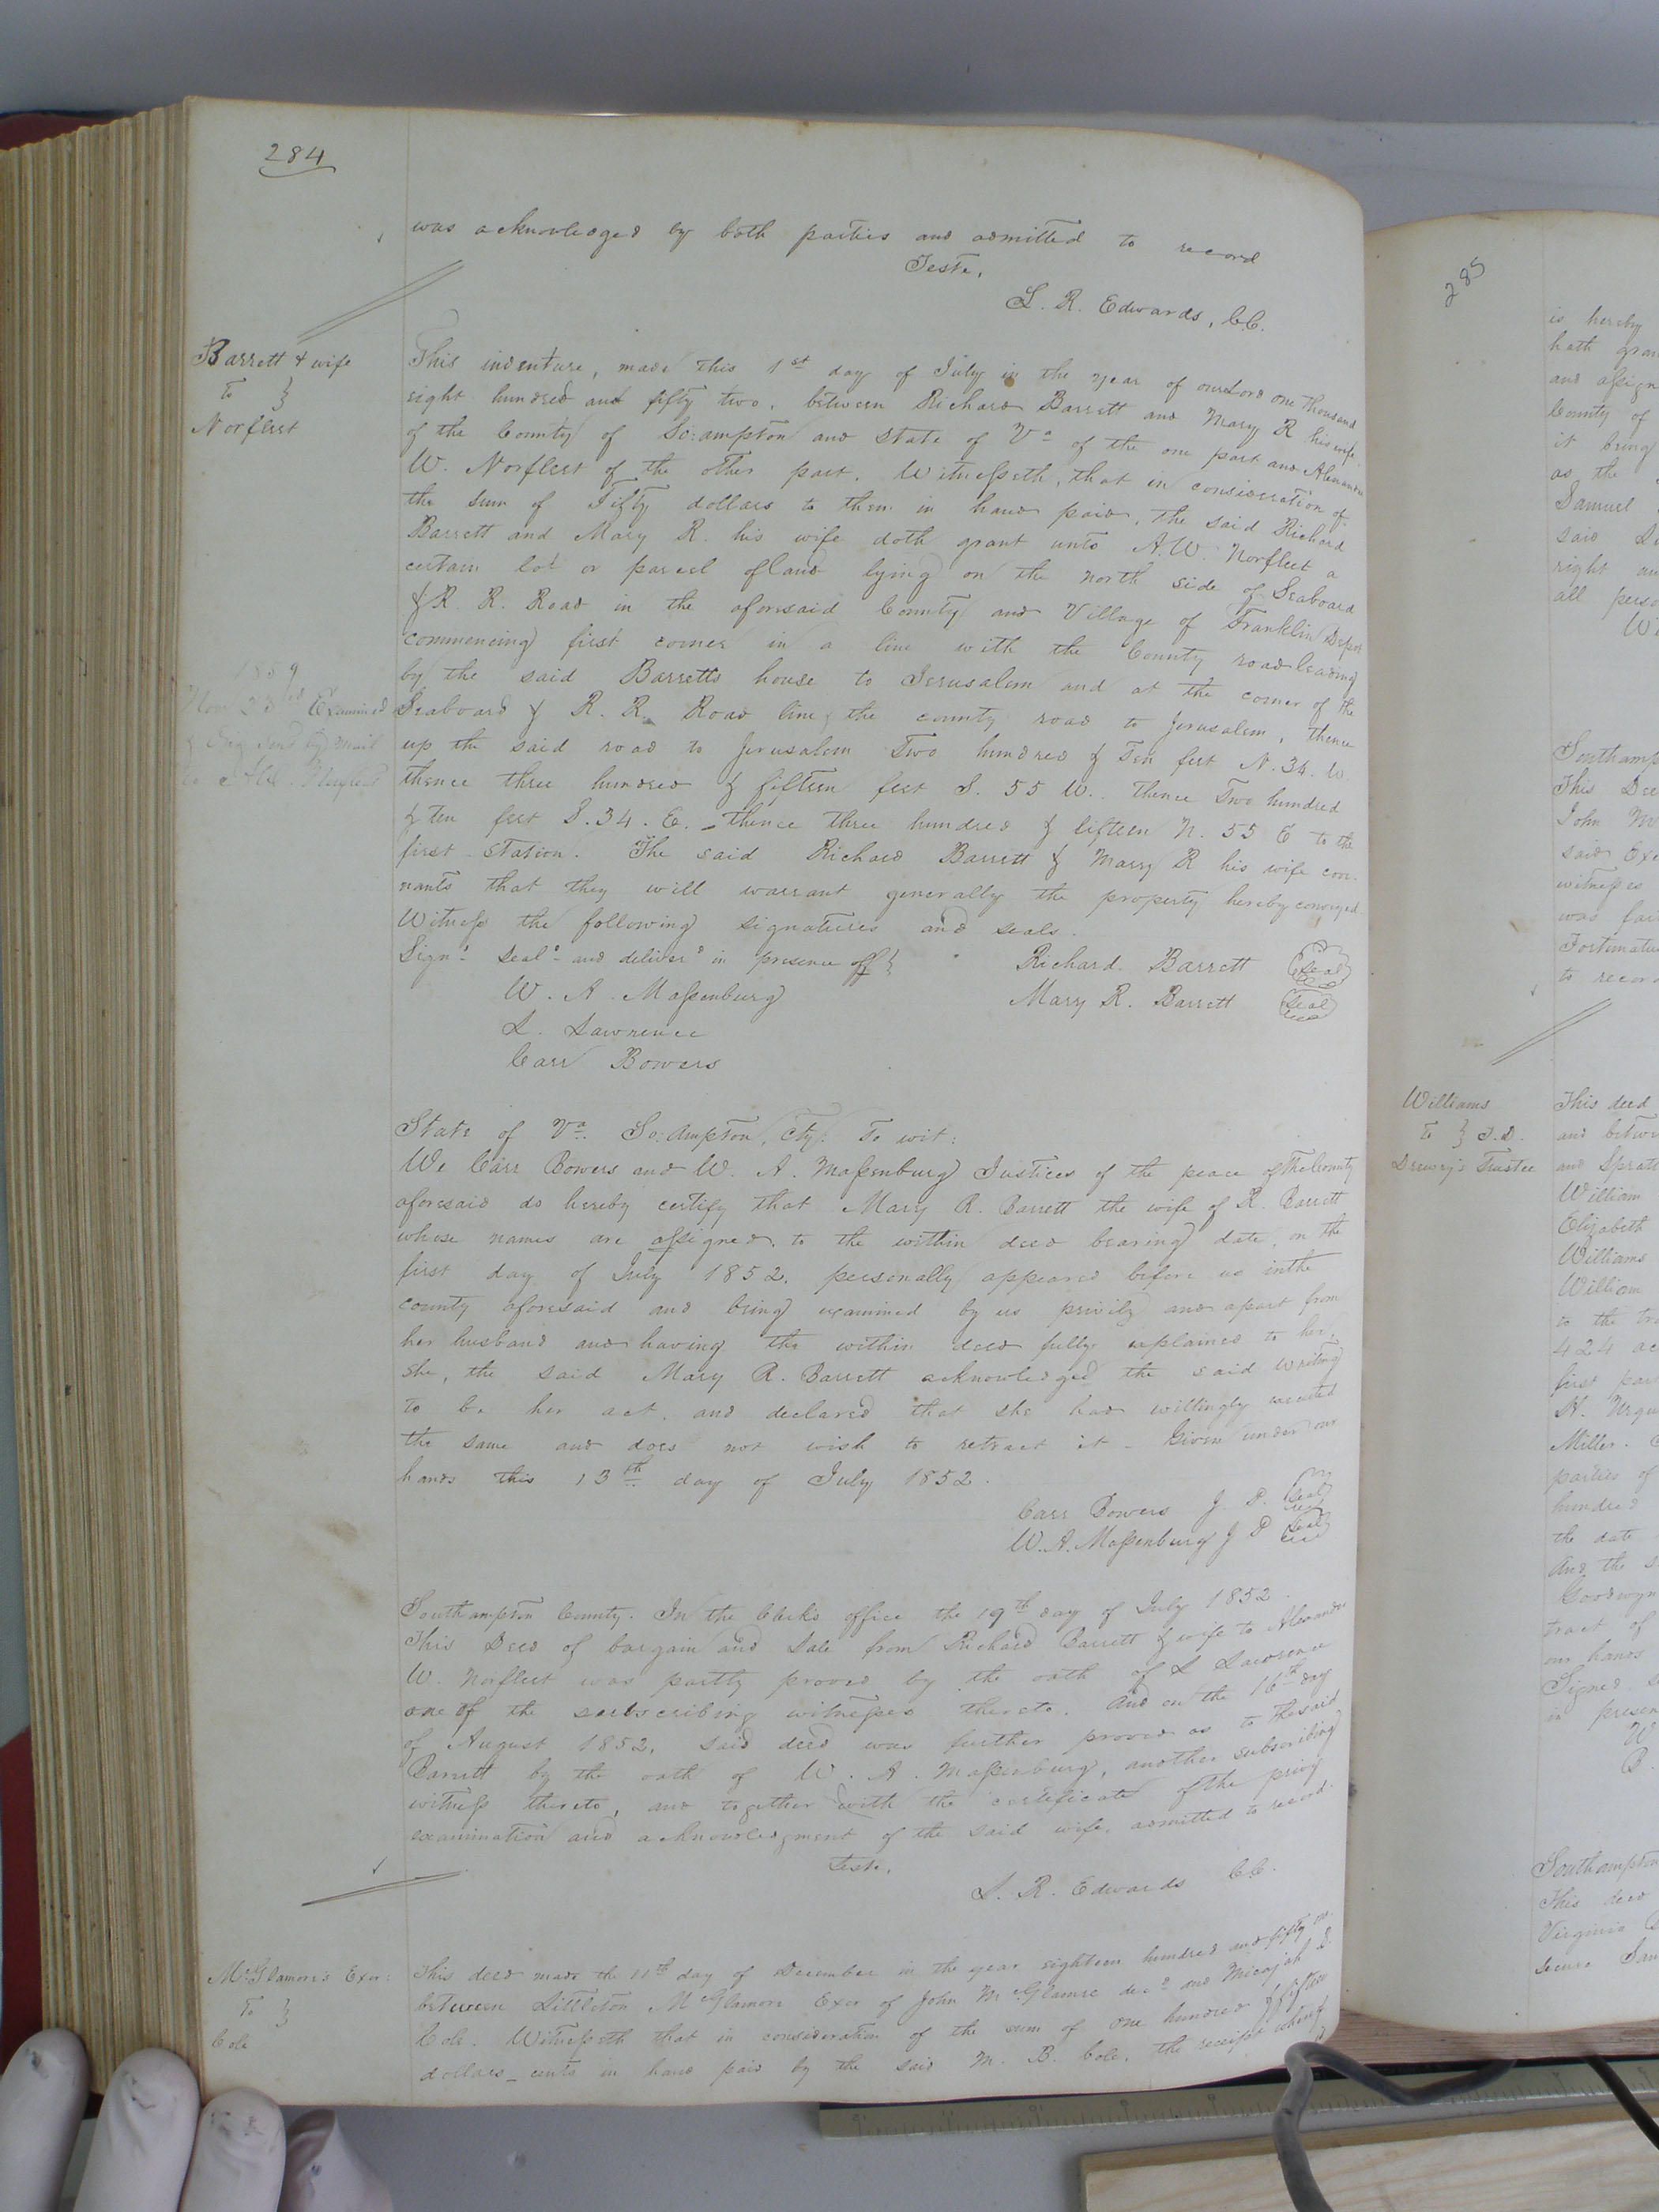 284
was acknowledged by both parties and admitted to record
Teste,
L. R. Edwards, C.C.
Barrett & wife
To }
Norfleet
This indenture, made this 1st day of July in the year of our Lord one thousand
eight hundred and fifty two, between Richard Barrett and Mary R his wife
of the County of So:ampton and State of Va of the one part and Alexander
W. Norfleet of the other part. Witnesseth, that in consideration of
the sum of Fifty dollars to them in hand paid, the said Richard
Barrett and Mary R. his wife doth grant unto A.W. Norfleet a
certain lot or parcel of land lying on the north side of Seaboard
& R. R. Road in the aforesaid County and Village of Franklin Depot
commencing first corner in a line with the County road leading
by the said Barretts house to Jerusalem and at the corner of the
Seaboard & R. R. Road line, the county road to Jerusalem, thence
up the said road to Jerusalem Two hundred & Ten feet N. 34. W.
thence three hundred & fifteen feet S. 55 W. Thence Two hundred
& ten feet S. 34. E. - thence three hundred & fifteen N. 55 E to the
first station. The said Richard Barrett & Mary R his wife cov-
nants that they will warrant generally the property hereby conveyed
Witness the following signatures and seals.
1859
Nov 23rd Examined
& Orig. Sent by mail
to Alex. Norfleet
Signd Seald and deliverd in presence off }
Richard. Barrett (Seal)
W. A. Massenburg
Mary R. Barrett (Seal)
L. Lawrence
Carr Bowers
State of Va. So:ampton, Cty: To wit:
We Carr Bowers and W. A. Massenburg Justices of the peace of The County
aforesaid do hereby certify that Mary R. Barrett the wife of R. Barrett
whose names are assigned, to the within deed bearing date, on the
first day of July 1852, personally appeared before us in the
county aforesaid and being examined by us privily and apart from
her husband and having the within deed fully explained to her,
she, the said Mary R. Barrett acknowledged the said writing
to be her act, and declared that she had willingly executed
the same and does not wish to retract it - Given under our
hands this 13th day of July 1852.
Carr Bowers J. P. (Seal)
W. A. Massenburg J P (Seal)
Southampton County. In the Clerk's office the 19th day of July 1852.
This Deed of bargain and Sale from Richard Barrett & wife to Alexander
W. Norfleet was partly proved by the oath of L Lawrence
one of the subscribing witnesses thereto. And on the 16th day
of August 1852, said deed was further proved as to the said
Barrett by the oath of W. A. Massenburg, another subscribing
witness thereto, and together with the certificate of the privy
examination and acknowledgment of the said wife, admitted to record.
Teste,
L. R. Edwards C.C.
McGlamore's Exor:
To }
Cole
This deed made the 11th day of December in the year eighteen hundred and fifty one
between Littleton McGlamore Exor of John McGlamore decd and Micajah B.
Cole. Witnesseth that in consideration of the sum of one hundred & fifteen
dollars _ cents in hand paid by the said M. B. Cole, the receipt whereof
285
is hereby
hath gran
and assign
County of
it being
as the
Samuel
said
right an
all perso
Wi
Southamp
This Dee
John
said Exe
witnesses
was
Fortunatu
to record
Williams
To } T.D.
Drewry's Trustee
This deed
and betwe
and Spratl
William
Elizabeth
Williams
William
to the
424 ac
first part
H. Urqu
Miller.
parties of
hundred
the date
And the
Goodwyn
tract of
our hands
Signed,
in presen
W
B.
Southampton
This deed
Virginia
secure